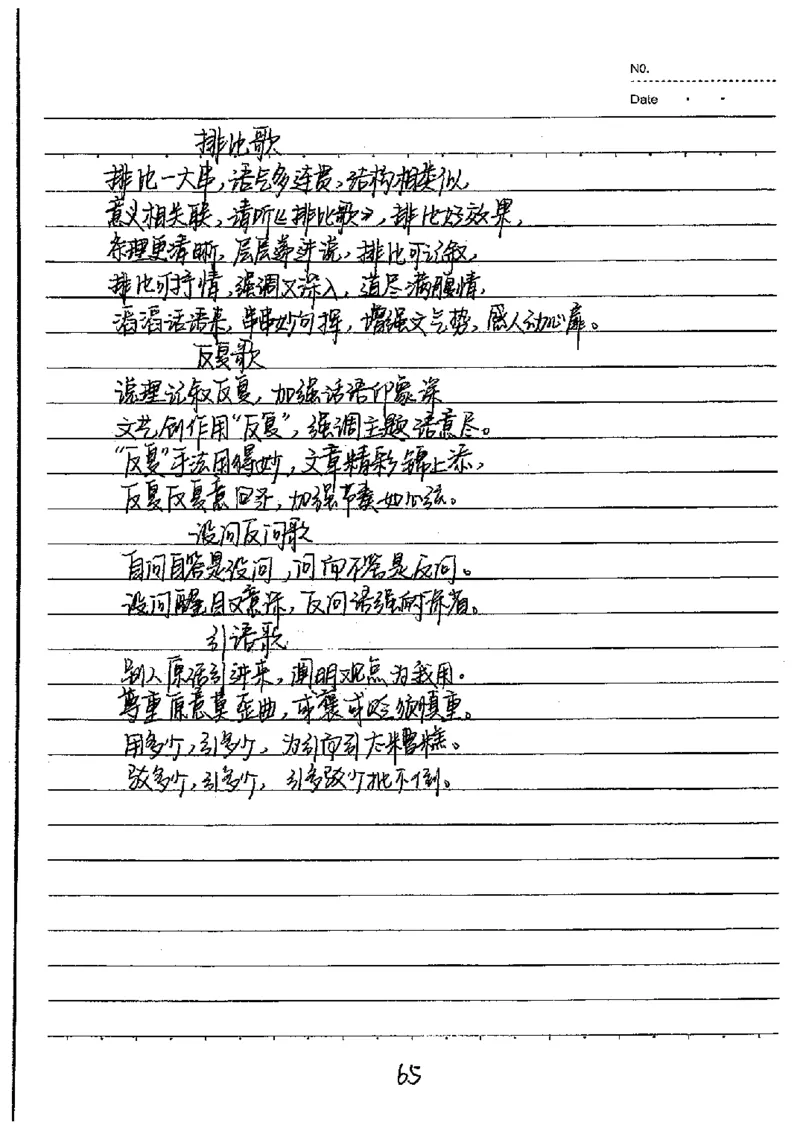 NO.
Date
排比歌
排比一大串,语气多连贯,结构相类似,
意义相关联,请听《排比歌》,排比好效果,
条理更清晰,层层递进说,排比可记叙,
排比可抒情,强调又深入,道尽满腹情,
滔滔话语来,串串妙句挥,增强文气势,感人动心扉。
反复歌
说理记叙反复,加强话语印象深
文艺创作用“反复”,强调主题语意尽。
“反复”手法用得妙,文章精彩锦上添,
反复反复意回还,加强节奏如心弦。
设问反问歌
自问自答是设问,问而不答是反问。
设问醒目又意深,反问语强的
引语歌
别人原话引进来,阐明观点为我用。
尊重原意莫歪曲,或褒或贬须慎重。
用多少,引多少,为引而引太糟糕。
驳多少,引多少,引多驳少批不倒。
65